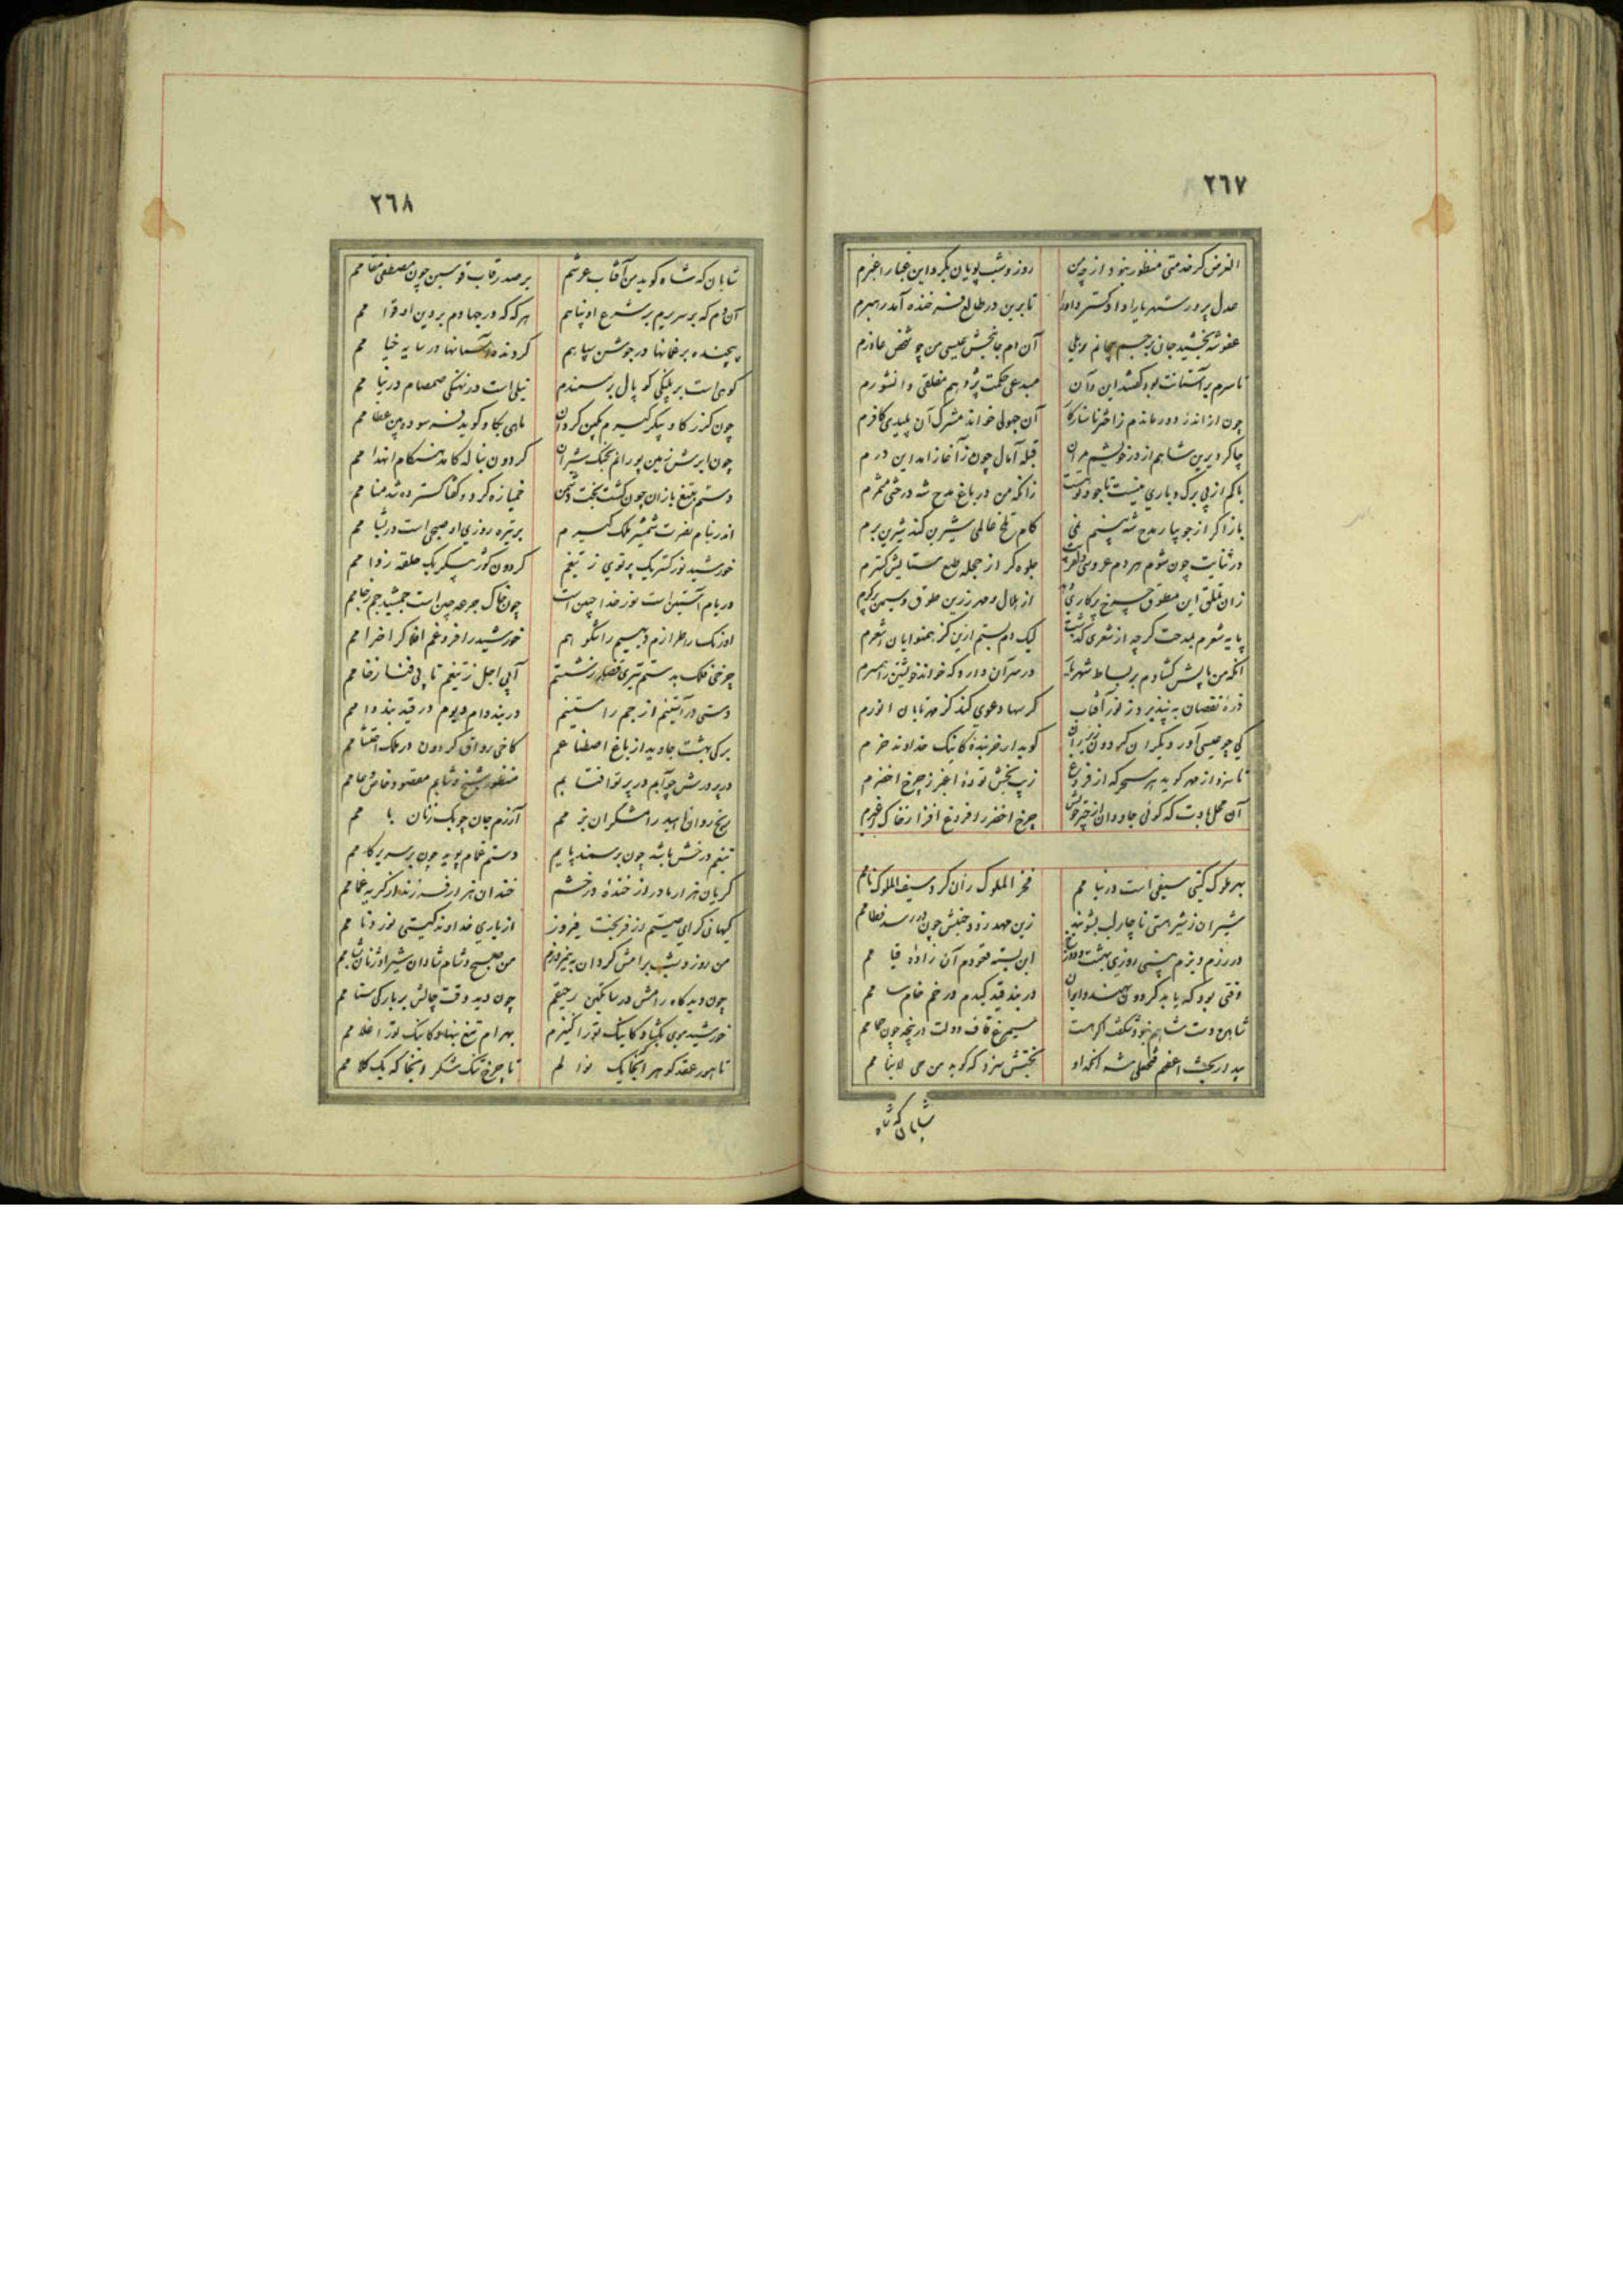 ٢٦٧
الغرض کر خدمتی منظور نبود از چه من روز و شب پویان بگرد این غبار اغبرم
عدل پرور شهریارا دادگستر داورا تا برین در طالع فرخنده آمد رهبرم
عفو شه بخشید جان بر جسم بیجانم ولی آن دم جانبخش عیسی من چو شخص عاذرم
تا سرم بر آستانت بود گفتند این و آن مبدعی حکمت پژوهم مفلقی دانشورم
چون از آن در دور ماندم ز اختر ناسازگار آن جهولی خواند مشرک آن پلیدی کافرم
چاکر دیرین شاهم از در خویشم مران قبله آمال چون ز آغاز آمد این درم
باکم از بی برگ و باری نیست تا جود تو هست زانکه من در باغ مدح شه درختی مثمرم
باز اگر از جویبار مدح شه بینم نمی کام تلخ عالمی شیرین کند شیرین برم
در ثنایت چون شوم هر دم عروسی جلوه گر از حجله طبع ستایش گسترم
زان تملق این مطوق چرخ پرکاری از هلال و مهر زرین طوق و سیمین
پایه شعرم بمدحت گرچه از شعری گذشت لیک دم بستم ازین کز همنوایان اشعرم
آنکه من پایش گشادم بر بساط شهریار در سر آن دارد که خواند خویشتن را همسرم
ذره نقصان نپذیرد ز نور آفتاب گر سها دعوی کند کز مهر تابان انورم
کی چو عیسی آورد دیگر این گردون گوید ار خربنده کاینک خداوند خرم
تا سزد از مهر گوید هر سحر که از فروغ زیب بخش توده اغبر ز چرخ اخضرم
آن محل بادت که گوئی جاودان از چتر خویش چرخ اخضر را فروغ افزا ز خاک اغبرم
بهر ملوک گیتی سیفی است در نیا مم فخر الملوک از آن کرد سیف الملوک نامم
شیران ز شیر هستی ناچار لب بشویند زین مهد زود جنبش چون در رسد فطامم
در رزم و بزم بینی روزی بهشت و دوزخ این بسته قعودم آن زاده قیا مم
وقتی بود که یابد گردون بهند و ایران در بند قید گیدم در خم خام سا مم
شاهین دست شاهم نبود شگفت اگر هست سیمرغ قاف دولت در پنجه چون حمامم
بیدار بخت اعظم فتحعلی شه آنکه او بختش سزد که گوید من حی لاینا مم
شاهان که شاه
٢٦٨
شاهان که شاه گوید من آفتاب عرشم بر صدر قاب قوسین چون مصطفی مقا مم
آن دم که بر سریرم بر شرع او پناهم هر که که در جهادم بر دین او قوا مم
پیچنده بر عنانها در جوشن سپاهم گردنده آسمانها در سایه خیا مم
کوهی است بر پلنگی کو پال بر سمندم نیلی است در نهنگی صمصام در نیا مم
چون گرز گاو پیکر گیرم بکین گردان ماهی بگاو گوید فرسوده بین عظا مم
چون ابرش زمین پو رانم بجنگ شیران گردون بنا له کامد هنگام انهدا مم
دستم بتیغ یازان چون گشت بخت دشمن خمیازه کرد و گفتا گسترده شد منا مم
اندر نیام نصرت شمشیر ملک گیرم بر تیره روزی او صبحی است در نیا مم
خورشید نور گستر یک پرتوی ز تیغم گردون گوژ پیکر یک حلقه ز دا مم
در یام آستین است نور خدا جبین است چون خاک جرعه چین است جمشید جم ز جا مم
اورنگ را طرازم دیهیم را شگو هم خورشید را فروغم افلاک را خرا مم
چرخی فلک بدستم تیری قضا ز شستم آبی اجل ز تیغم تا بی فنا ز خا مم
دستی در آستینم از جم را ستینم در بند دام دیوم در قید بند دا مم
برگی بهشت جاوید از باغ اصطنا عم کاخی رواق گردون در ملک احتشا مم
در پرورش چو آبم در پرتو آفتا بم منظور شیخ و شابم مقصود خاص و عا مم
رنج روان ناهید رامشگران بز مم آزرم جان چوبک زنان با مم
تیغم درخش باشد چون بر سمند پایم دستم غمام پوید چون بر سریر گا مم
گریان هزار مادر از خنده درخشم خندان هزار فرزند از گریه غما مم
کیهان گرای صیتم از فر بخت فیروز از یاری خداوند گیتی نورد نا مم
من روز و شب برامش گردان به نیمروزم من صبح و شام شادان شیر اوژنان شا مم
چون دید گاه رامش در ساتکین رحیقم چون دید وقت چالش بر بارگی ستا مم
خورشید موی بگشاد کاینک تو را کنیزم بهرام تیغ بنهاد کاینک تو را غلا مم
تا هور عقد گوهر آنجا یک نوا لم تا چرخ تنگ شکر اینجا که یک کلا مم